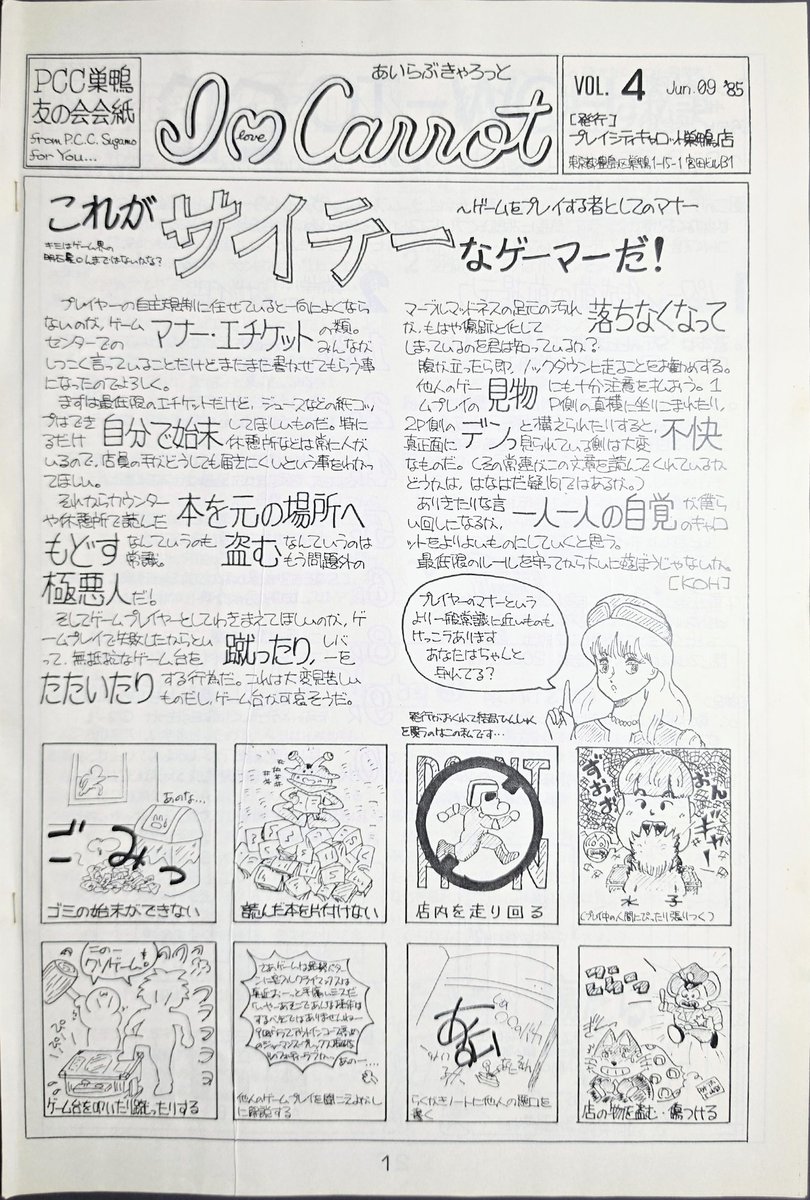 PCC巣鴨
友の会会紙
from P.C.C. Sugamo
for You...
あいらぶきゃろっと
I love Carrot
VOL. 4 Jun.09 '85
[発行]
プレイシティキャロット巣鴨店
東京都豊島区巣鴨1-15-1 宮田ビルB1
これが サイテー なゲーマーだ!
～ゲームをプレイする者としてのマナー
キミはゲーム界の
明石家○んまではないかな?
プレイヤーの自主規制に任せていると一向によくなら
ないのが、ゲームセンターでの マナー・エチケット の類。みんなが
しつこく言っていることだけどまたまた書かせてもらう事
になったのでよろしく。
まずは最低限のエチケットだけど、ジュースなどの紙コッ
プはできるだけ 自分で始末 してほしいものだ。特に休憩所などは常に人が
いるので、店員の手がどうしても届きにくいという事をわかっ
てほしい。
それからカウンターや休憩所で読んだ 本を元の場所へ
もどす なんていうのも常識。 盗む なんていうのはもう問題外の
極悪人だ!
そしてゲームプレイヤーとしてわきまえてほしいのが、ゲ
ームプレイで失敗したからといって、無抵抗なゲーム台を 蹴ったり, レバーを
たたいたり する行為だ。これは大変見苦しいものだし、ゲーム台が可哀そうだ。
マーブルマッドネスの足元の汚れが、もはや傷跡と化して 落ちなくなって
しまっているのを君は知っているか?
腹が立ったら即、ノックダウンに走ることをお勧めする。
他人のゲームプレイの 見物 にも十分注意を払おう。1P側の真横に座りこまれたり,
2P側の真正面に デン っと構えられたりすると, 見られている側は大変 不快
なものだ。(その常連がこの文章を読んでくれているか
どうかは, はなはだ疑問ではあるが。)
ありきたりな言い回しになるが、 一人一人の自覚 が僕らのキャロ
ットをよりよいものにしていくと思う。
最低限のルールを守ってから大いに遊ぼうじゃないか。
[KOH]
プレイヤーのマナーという
より一般常識に近いものも
けっこうあります
あなたはちゃんと
守れてる?
発行がおくれて結局ひんしゅく
を買うのはこの私です…
あのな…
ごみっ
ゴミの始末ができない
読んだ本を片付けない
DON'T
店内を走り回る
ずおお
おんぎゃー
水 子
(プレイ中の人間にぴったり張りつく)
このークソゲーム!
ゲーム台を叩いたり蹴ったりする
あのー…
他人のゲームプレイを聞こえよがし
に解説する
らくがきノートに他人の悪口を
書く
店の物を盗む・傷つける
1